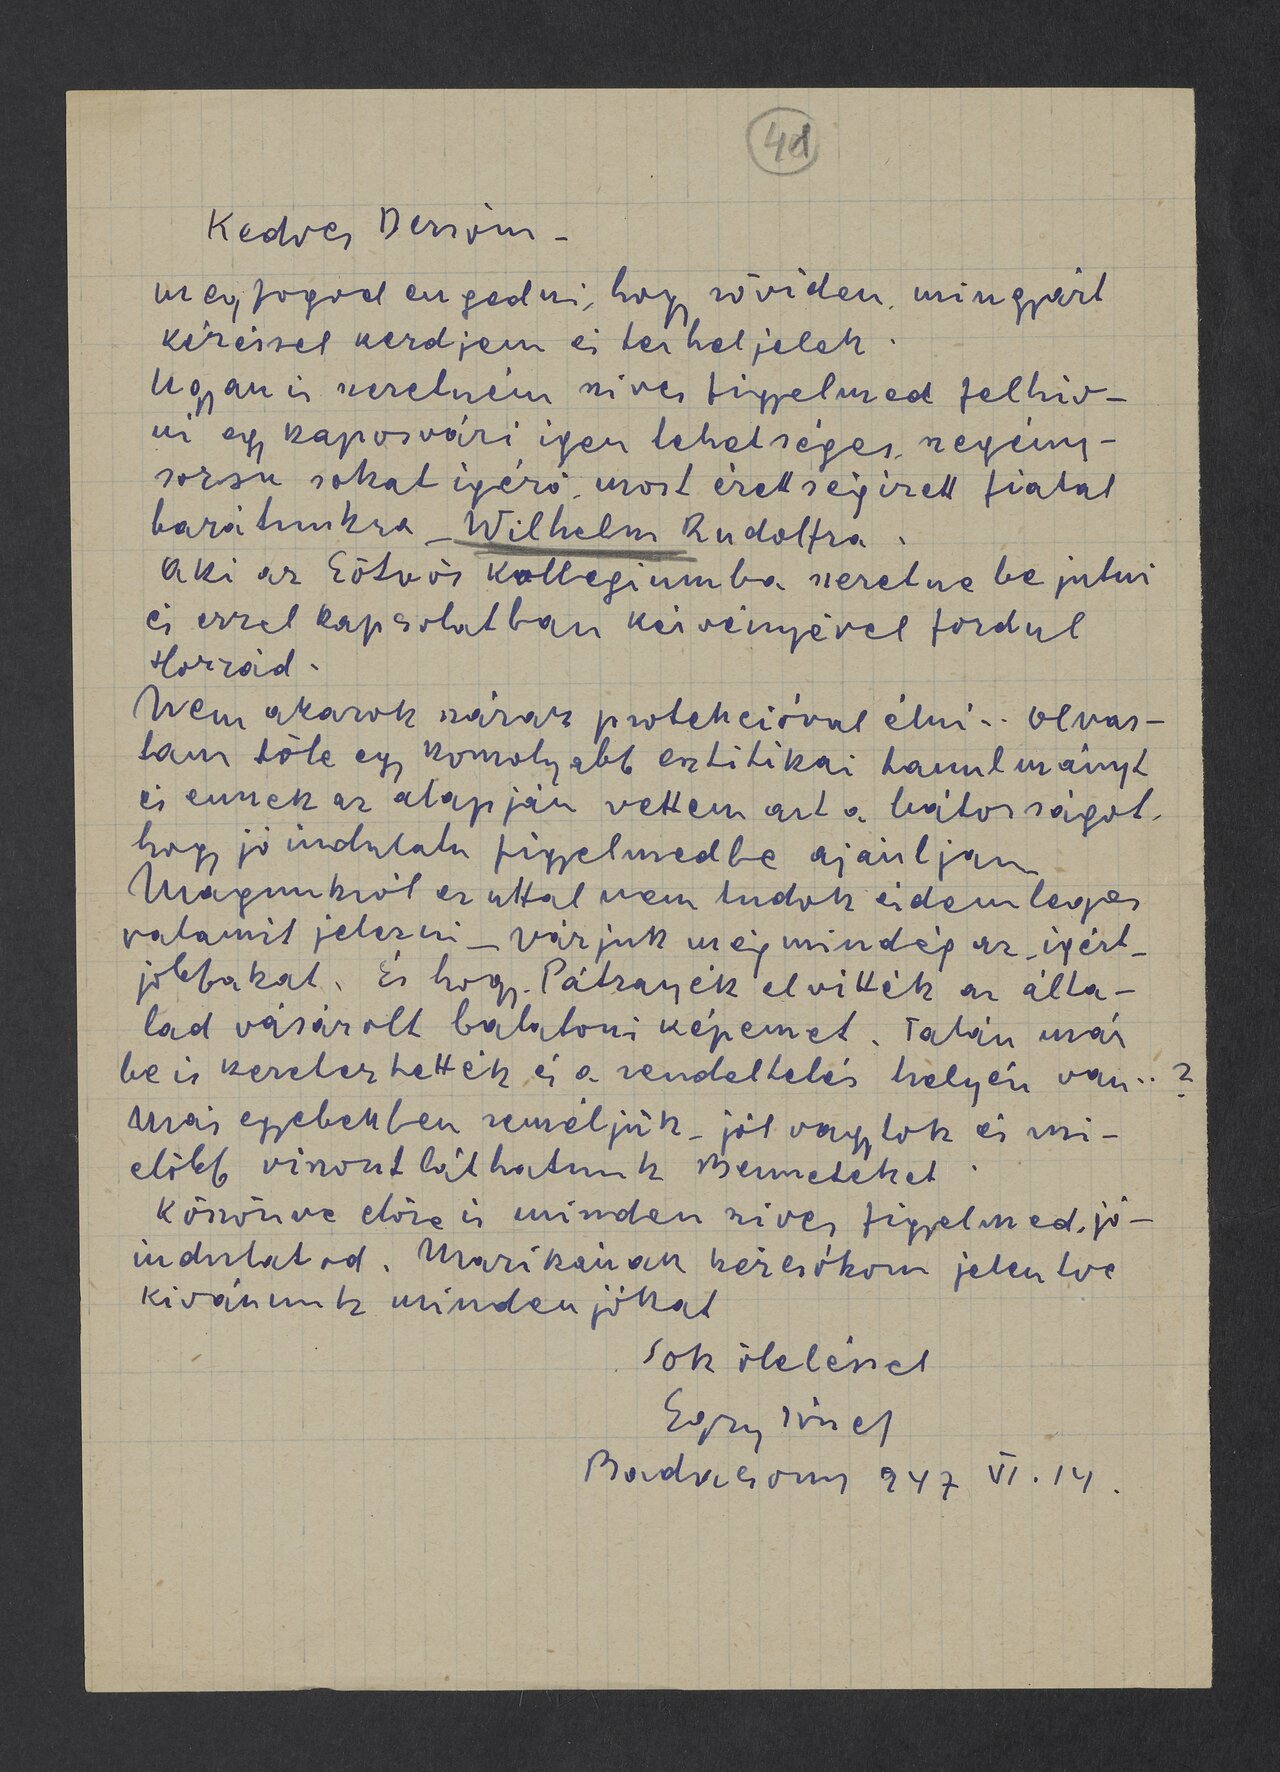 41
Kedves Dezsőm –
meg fogod engedni, hogy röviden, mingyárt
kéréssel kezdjem és terheljelek.
Ugyan is szeretném szives figyelmed felhiv–
ni egy kaposvári igen tehetséges, szegény–
sorsu sokat igérő, most érettségizett fiatal
barátunkra – Wilhelm Rudolfra.
Aki az Eötvös Kollegiumba szeretne be jutni
és ezzel kapcsolatban kérvényével fordul
Hozzád.
Nem akarok száraz protekcióval élni.. olvas–
tam tőle egy komolyabb esztitikai tanulmányt
és ennek az alapján vettem azt a bátorságot,
hogy jó indulatu figyelmedbe ajánljam
Magunkról ez uttal nem tudok érdemleges
valamit jelezni – várjuk még mindég az igért–
jobbakat. És hogy Pátzayék elvitték az álta–
lad vásárolt balatoni képemet. Talán már
be is kereteztették és a rendeltetés helyén van.. ?
Más egyebekben reméljük – jól vagytok és mi–
előbb viszontláthatunk Benneteket.
Köszönve előre is minden szives figyelmed, jó–
indulatod. Marikának kézcsókom jelentve
kivánunk minden jókat
Sok öleléssel
Egry József
Badacsony 947 VI. 14.